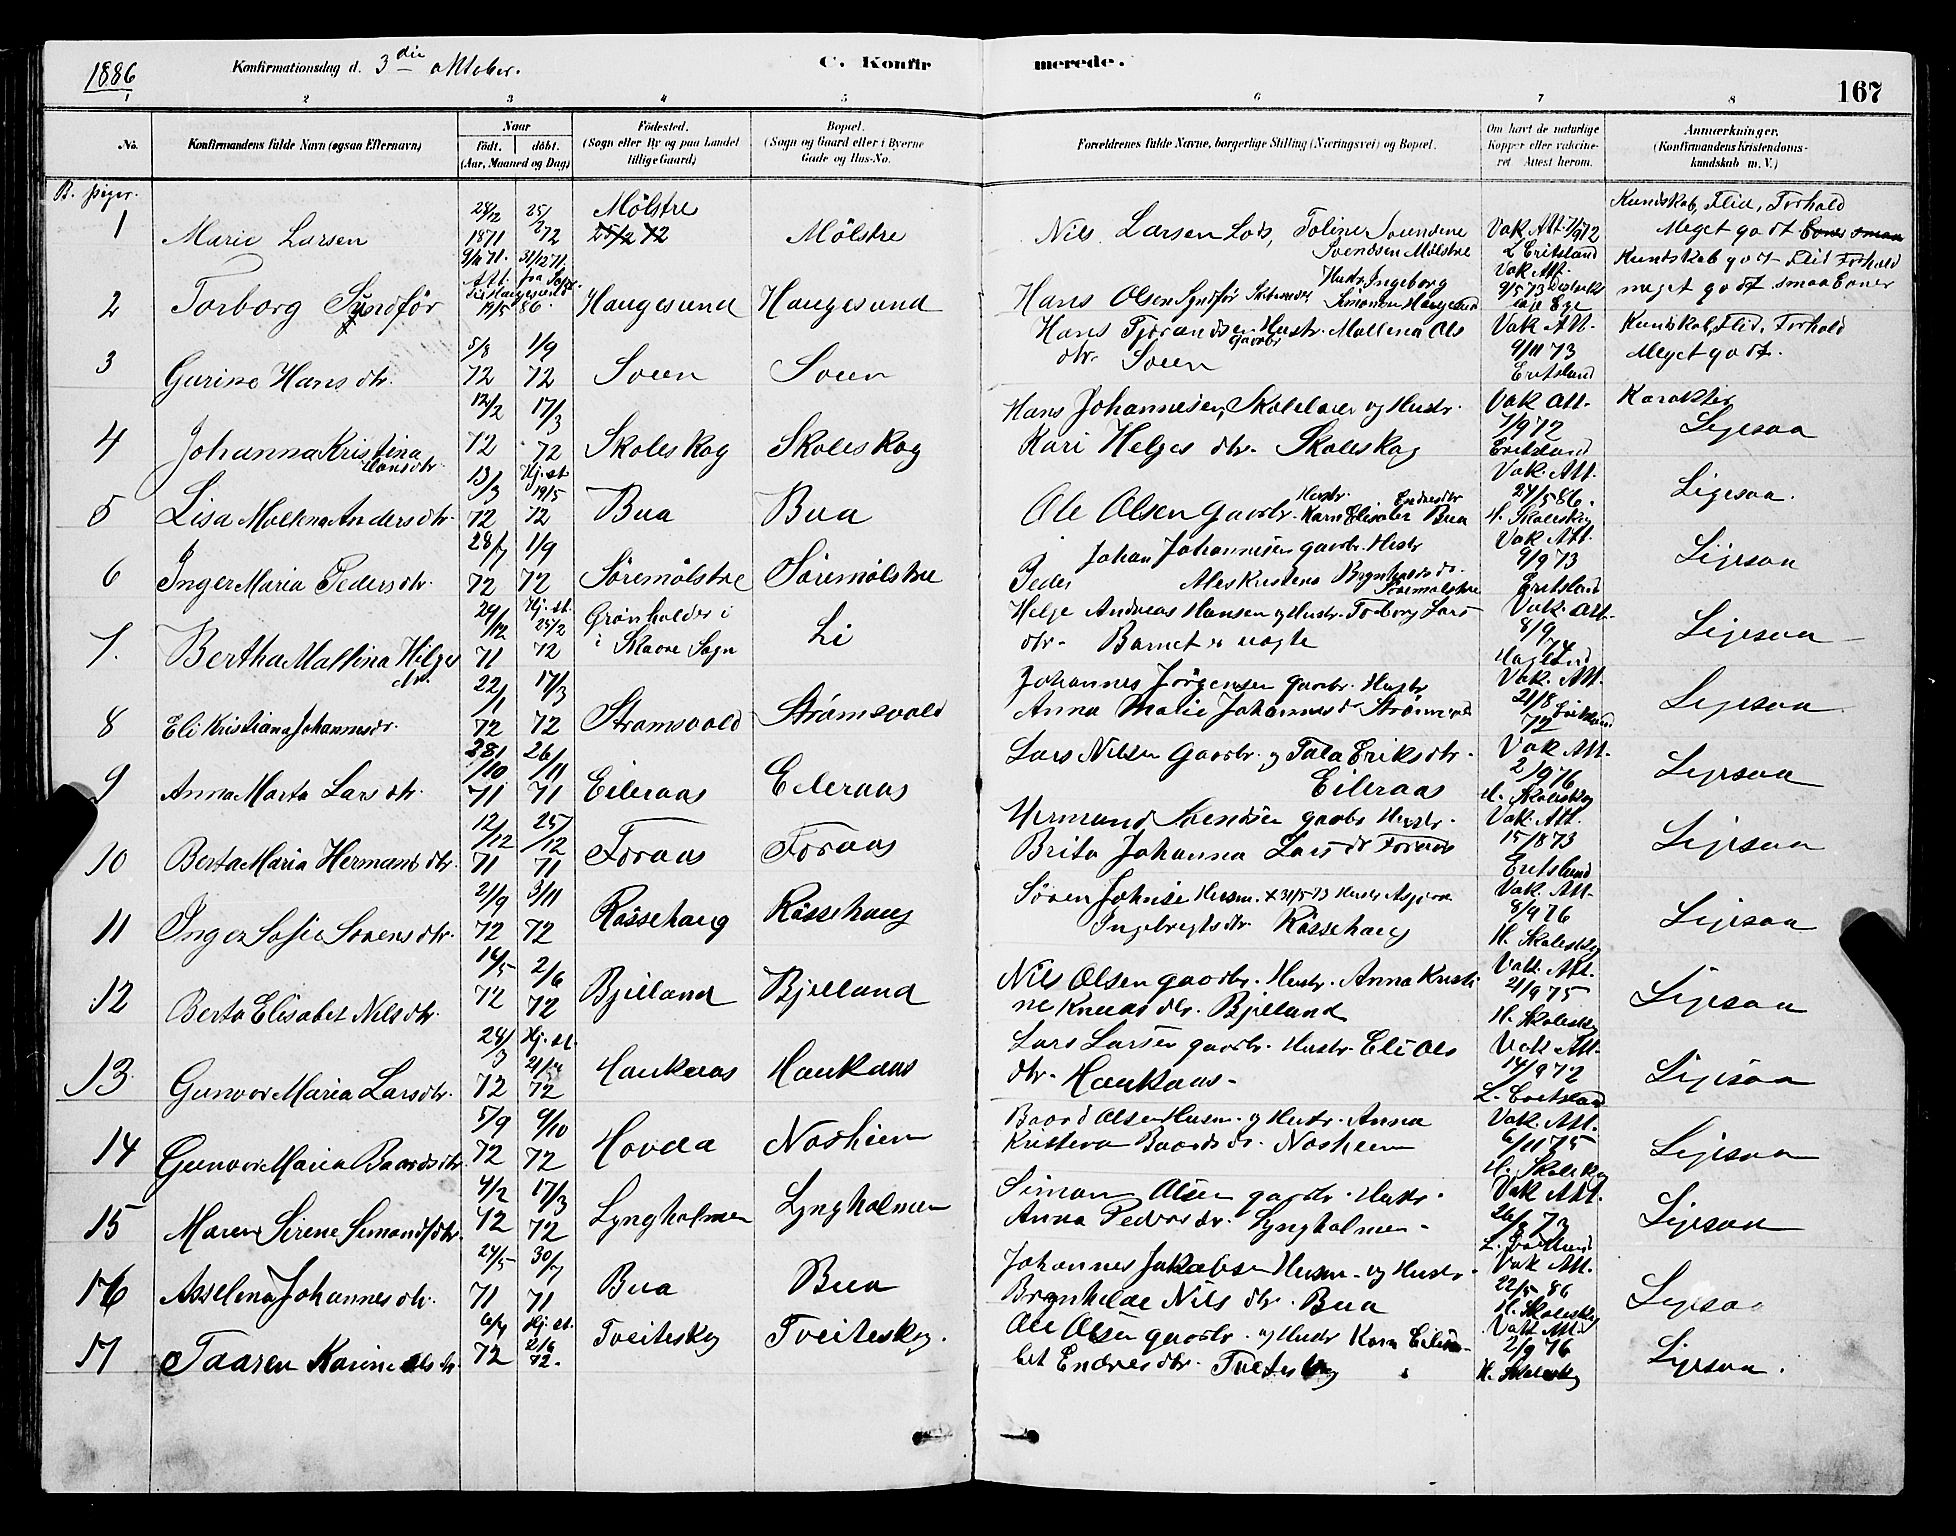 1886 Konfirmationsdag d. 3die oktober. C. Konfirmerede. 167
1 2 3 4 5 6 7 8
No. Konfirmandens fulde Navn (ogsaa Efternavn) Naar födt. döbt. (Aar, Maaned og Dag) Födested. (Sogn eller By og paa Landet tillige Gaard) Bopæl. (Sogn og Gaard eller i Byerne Gade og Hus-No. Forældrenes fulde Navne, borgerlige Stilling (Næringsvei) og Bopæl. Om havt de naturlige Kopper eller vakcineret. Attest herom. Anmærkninger. (Konfirmandens Kristendomskundskab m. V.)
B. piger.
1 Marie Larsen 28/12 1871 25/2 72 Mölstre 25/2 72 Mölstre Nils Larsen Lods, Svendsen Mölstre Vak Att. L Eritsland Kundskab, Flid, Forhold Meget godt
2 Torborg Syndför 9/11 71. 31/12 71. Att. fra 19/5 86. Haugesund Haugesund Hans Olsen Syndför Hustr. Ingeborg Vak Att. 9/5 73 Kundskab godt Flid Forhold meget godt
3 Gurine Hansdtr. 5/8 72 1/9 72 Soen Soen Hans Gaardbr. Hustr. Mallena Olsdtr. Soen Vak Att. 9/11 73 Eritsland Kundskab, Flid, Forhold Meget godt.
4 Johanna Kristina Hansdtr. 12/2 72 17/3 72 Skoleskog Skoleskog Hans Johannesen, Skolelærer og Hustr. Kari Helgesdtr. Skoleskog Vak Att. 7/9 72 Eritsland Karakter Ligesaa
5 Lisa Mallena Andersdtr. 13/3 72 Hj. st. 19/5 72 Bua Bua Ole Olsen Gaardbr. Hustr. Karn Elisabet Endresdtr Bua Vak. Att. 24/5 86. H. Skoleskog Ligesaa.
6 Inger Maria Pedersdtr. 28/7 72 1/9 72 Söremölstre Söremölstre Peder Johan Johannesen gaardbr. Hustr Söremölstre Vak Att. 9/9 73 Eritsland Ligesaa
7. Bertha Mallina Helgesdtr. 24/12 71 Hj. st. 25/2 72 Grönholder i i Skaare Sogn Li Helge Andreas Hansen og Hustr. Torborg Larsdtr. Barnet er uægte Vak. Att. 8/9 74 Ligesaa
8 Eli Kristiana Johannesdr. 22/1 72 17/3 72 Stramsvold Strömsvold Johannes Jörgensen gaardbr. Hustr Anna Malie Johannesd Vak. Att. 21/8 72 Eritsland Ligesaa
9 Anna Marta Larsdtr. 28/10 71 26/11 71 Eileraas Eileraas Lars Nilsen Gaardbr. og Tala Eriksdtr. Eileraas Vak Att. 2/9 76 H. Skoleskog Ligesaa
10 Berta Maria Hermansdtr. 12/12 71 25/12 71 Foraas Foraas Hermund Svendsen gaardbr Hustr. Brita Johanna Larsdr Foraas Vak. Att. 15/8 73 Eritsland Ligesaa
11 Inger Sofie Sörensdtr. 21/9 72 3/11 72 Rössehaug Rössehaug Sören Husm. Hustr Ingebrigtsdtr. Rössehaug Vak. Att. 8/9 76 H. Skoleskog Ligesaa
12 Berta Elisabet Nilsdtr. 14/5 72 2/6 72 Bjelland Bjelland Nils Olsen gaardbr. Hustr. Anna Kristine Knudsdtr. Bjelland Vak. Att. 21/9 75 H. Skoleskog Ligesaa
13 Gunvor Maria Larsdtr. 28/3 72 Hj. st. 72 Haukaas Haukaas Lars Larsen gaardbr. Hustr. Eli Olsdtr. Haukaas Vak Att. 14/9 72 L. Eritsland Ligesaa
14 Gunvor Maria Baardsdtr. 5/9 72 6/10 72 Hovda Nosheim Baard Olsen Husm. og Hustr. Anna Baardsdr. Nosheim Vak. Att. 6/11 75 H. Skoleskog Ligesaa
15 Maren Serene Simonsdtr. 4/2 72 17/3 72 Lyngholmen Lyngholmen Simon Olsen gaardbr. Hustr. Anna Pedersdr. Lyngholmen Vak Att. 26/8 73 Ligesaa
16 Asselina Johannesdtr. 24/5 71 30/7 71 Bua Bua Johannes Jakobsen Husm. og Hustr. Brynhilde Nilsdtr. Bua Vak Att. 22/5 86 H. Skoleskog Ligesaa
17 Taaren Karine Olsdtr 72 Hj. st. 2/6 72. Tveiteskog Tveiteskog. Ole Olsen gaardbr. og Hustr Karn Elisabet Endresdtr. Tveiteskog Vak Att. 2/9 76 H. Skoleskog Ligesaa.